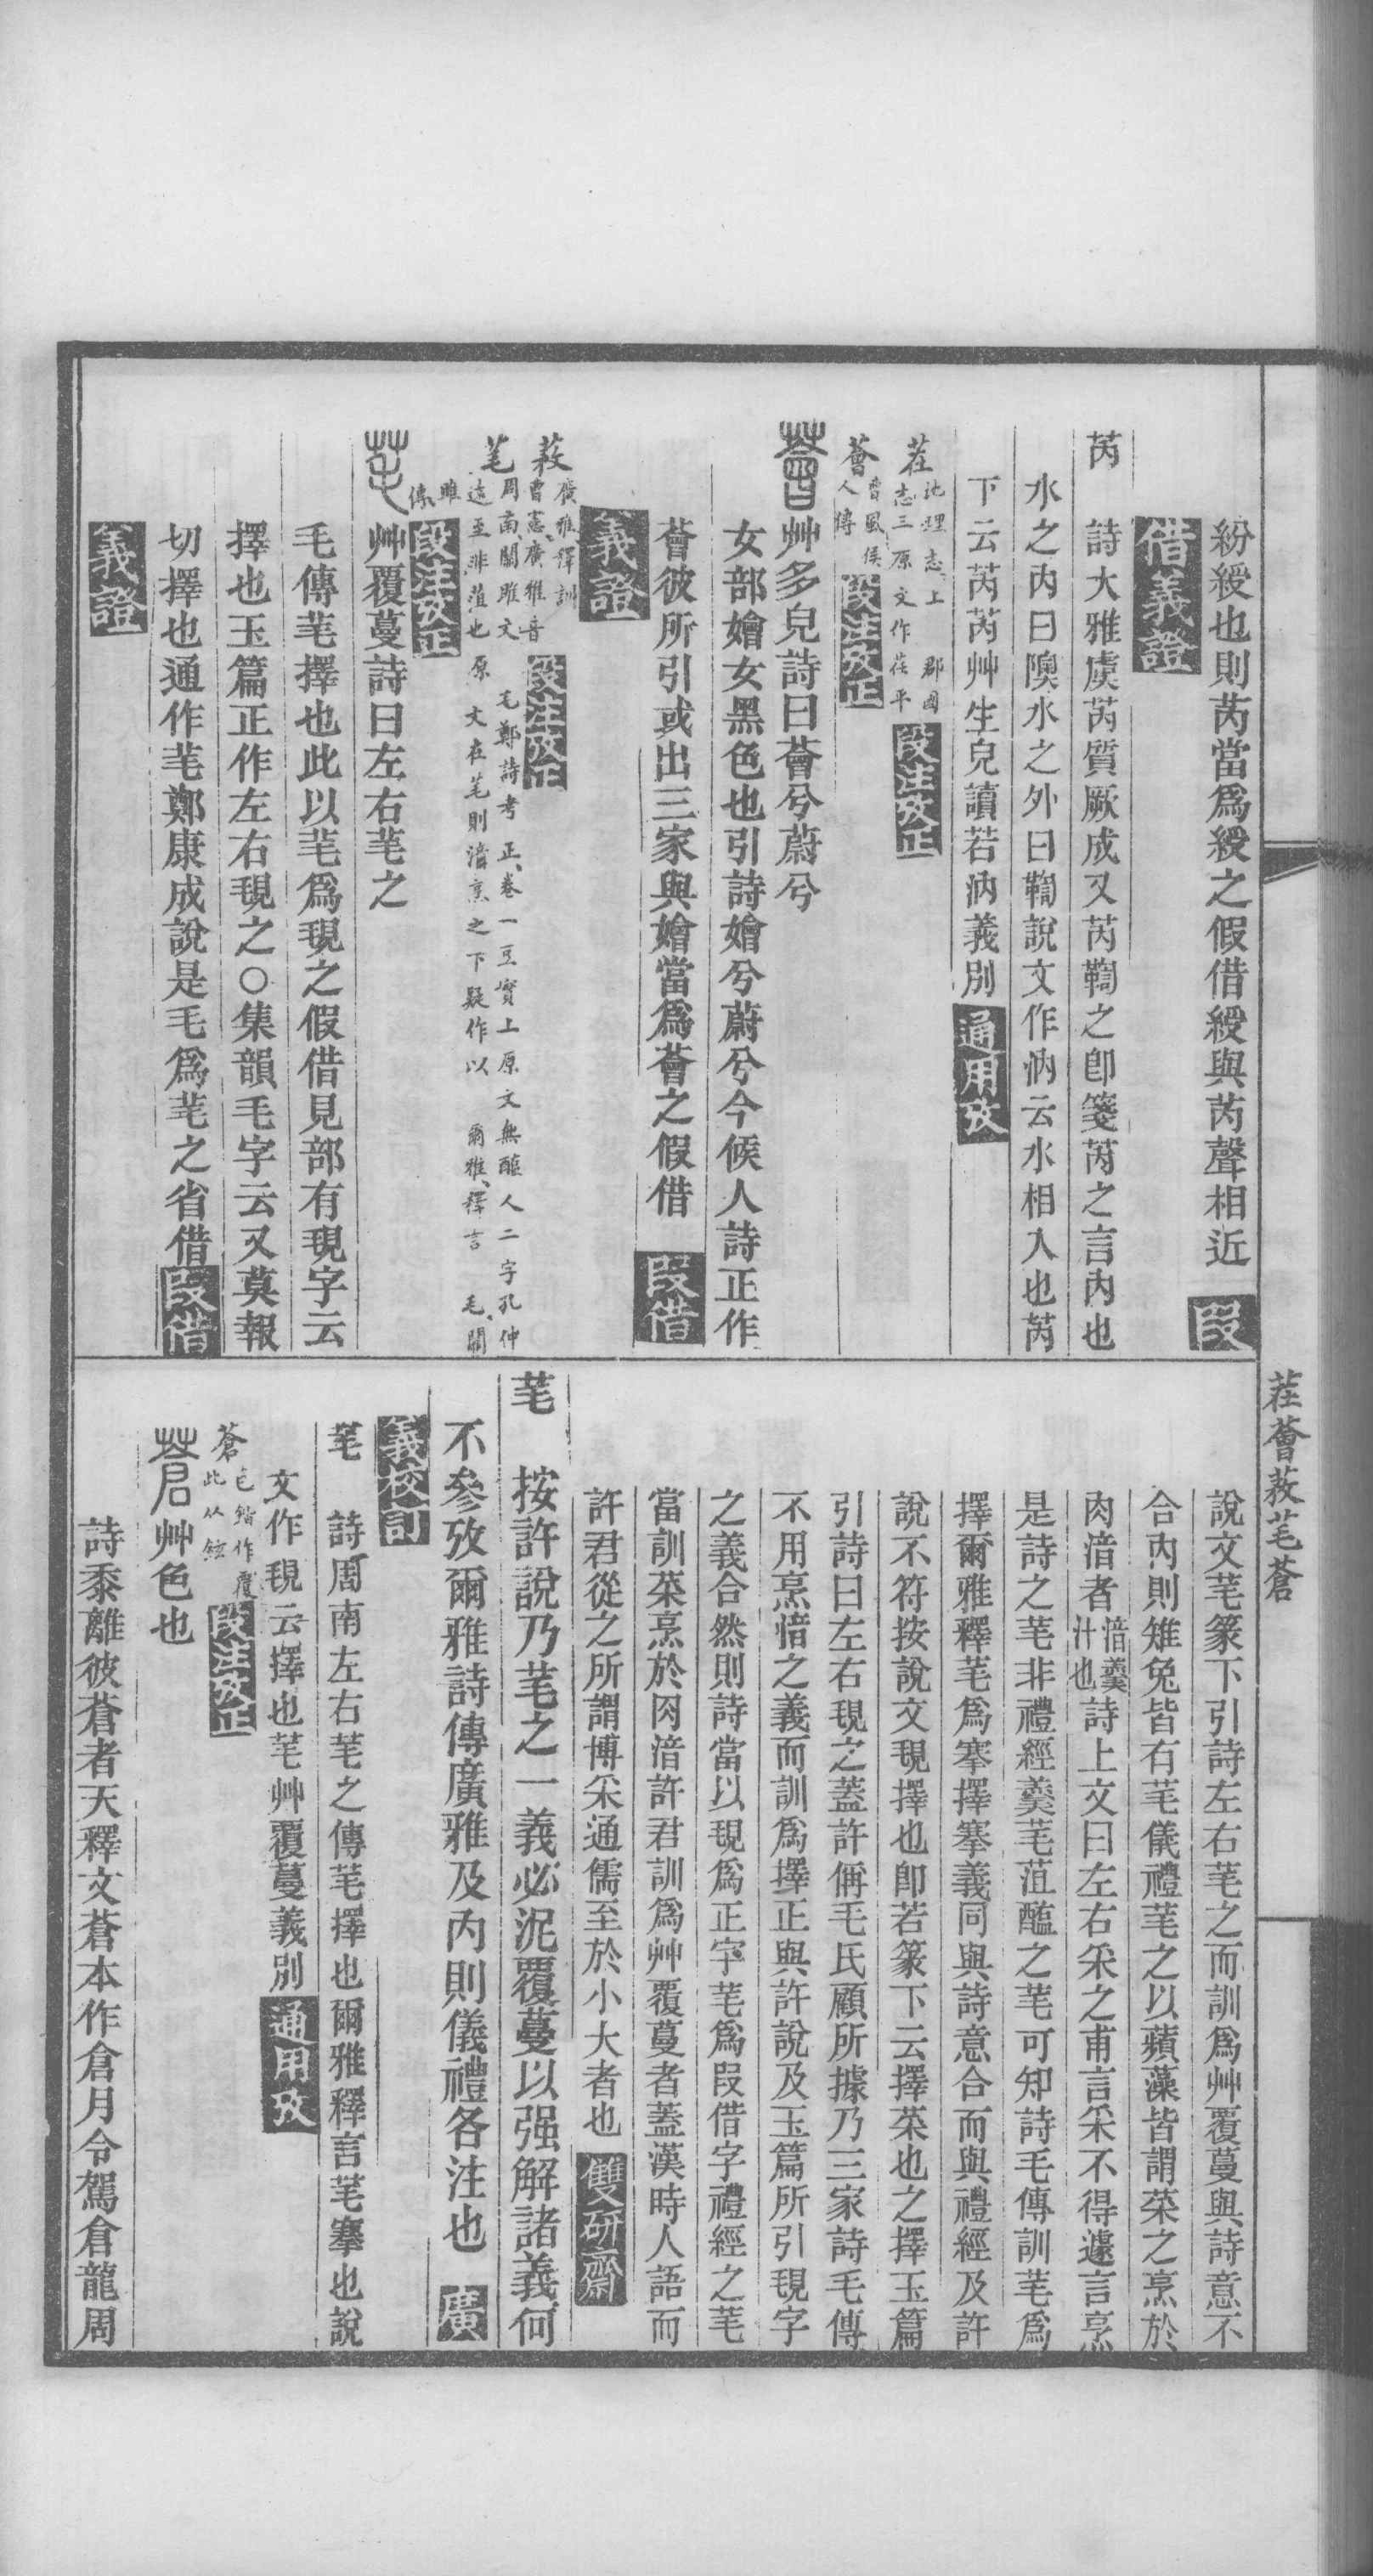 紛綬也則芮當爲綬之假借綬與芮聲相近 叚
借義證
芮 詩大雅虞芮質厥成又芮鞫之卽箋芮之言內也
水之內曰隩水之外曰鞫說文作汭云水相入也芮
下云芮芮艸生皃讀若汭義別 通用攷
茬 地理志上 郡國
志三原文作茌平 段注攷正
薈 曹風侯
人傳 段注攷正
薈 艸多皃詩曰薈兮蔚兮
女部嬒女黑色也引詩嬒兮蔚兮今候人詩正作
薈彼所引或出三家與嬒當爲薈之假借 叚借
義證
菽 廣雅釋訓
曹憲廣雅音 段注攷正
芼 周南關雎文 毛鄭詩考正卷一豆實上原文無醢人二字孔仲
達至非菹也 原文在芼則湆烹之下疑作以 爾雅釋言 毛關
雎
傳 段注攷正
芼 艸覆蔓詩曰左右芼之
毛傳芼擇也此以芼爲覒之假借見部有覒字云
擇也玉篇正作左右覒之○集韻毛字云又莫報
切擇也通作芼鄭康成說是毛爲芼之省借 叚借
義證
茬薈菽芼蒼
說文芼篆下引詩左右芼之而訓爲艸覆蔓與詩意不
合內則雉兔皆有芼儀禮芼之以蘋藻皆謂菜之烹於
肉湆者湆羹
汁也詩上文曰左右采之甫言采不得遽言烹
是詩之芼非禮經羹芼菹醢之芼可知詩毛傳訓芼爲
擇爾雅釋芼爲搴擇搴義同與詩意合而與禮經及許
說不符按說文覒擇也卽若篆下云擇菜也之擇玉篇
引詩曰左右覒之蓋許偁毛氏顧所據乃三家詩毛傳
不用烹湆之義而訓爲擇正與許說及玉篇所引覒字
之義合然則詩當以覒爲正字芼爲叚借字禮經之芼
當訓菜烹於肉湆許君訓爲艸覆蔓者蓋漢時人語而
許君從之所謂博采通儒至於小大者也 雙研齋
芼 按許說乃芼之一義必泥覆蔓以强解諸義何
不參攷爾雅詩傳廣雅及內則儀禮各注也 廣
義校訂
芼 詩周南左右芼之傳芼擇也爾雅釋言芼搴也說
文作覒云擇也芼艸覆蔓義別 通用攷
蒼 色鍇作覆
此从鉉 段注攷正
蒼 艸色也
詩黍離彼蒼者天釋文蒼本作倉月令駕倉龍周